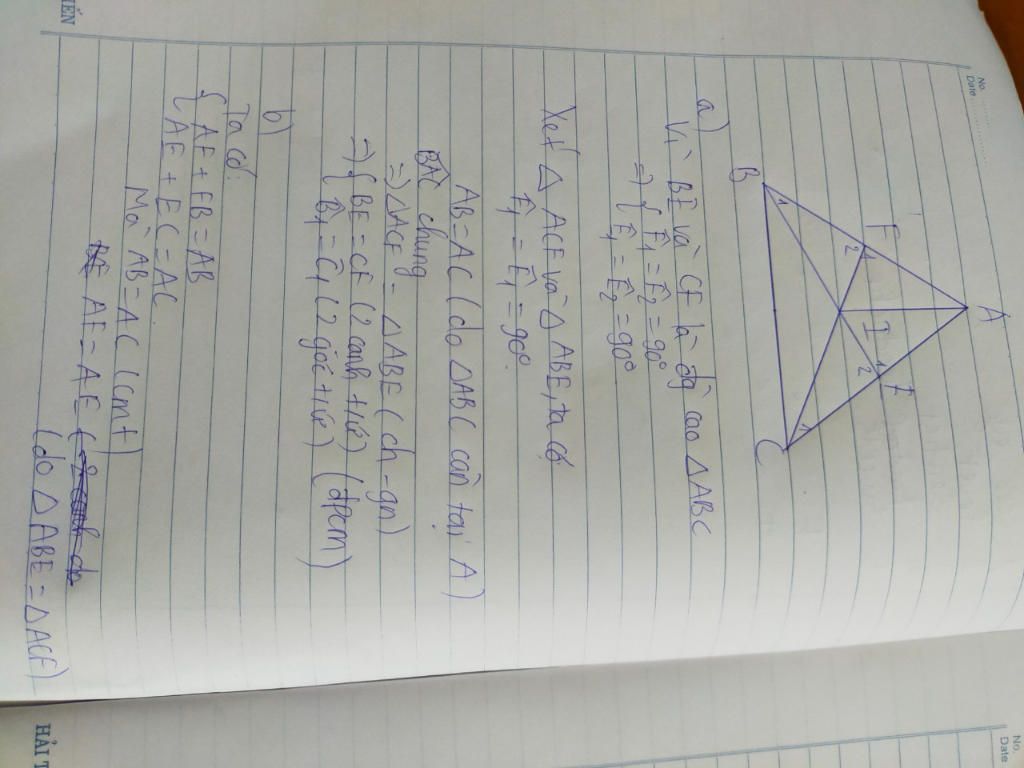 No.
Date
A
F
1
2
I
1
2
E
B
1
1
C
a)
Vì BE và CF là đg cao △ABC
=> { F̂₁ = F̂₂ = 90°
Ê₁ = Ê₂ = 90°
Xét △ ACF và △ ABE, ta có
F̂₁ = Ê₁ = 90°.
AB = AC (do △ABC cân tại A)
BÂC chung
=> △ACF = △ABE (ch - gn)
=> { BE = CF (2 cạnh tiứ)
B̂₁ = Ĉ₁ (2 góc tiứ) (đpcm)
b)
Ta có:
{ AF + FB = AB
AE + EC = AC.
Mà AB = AC (cmt)
AF = AE
(do △ABE = △ACF)
No.
Date
HẢI T